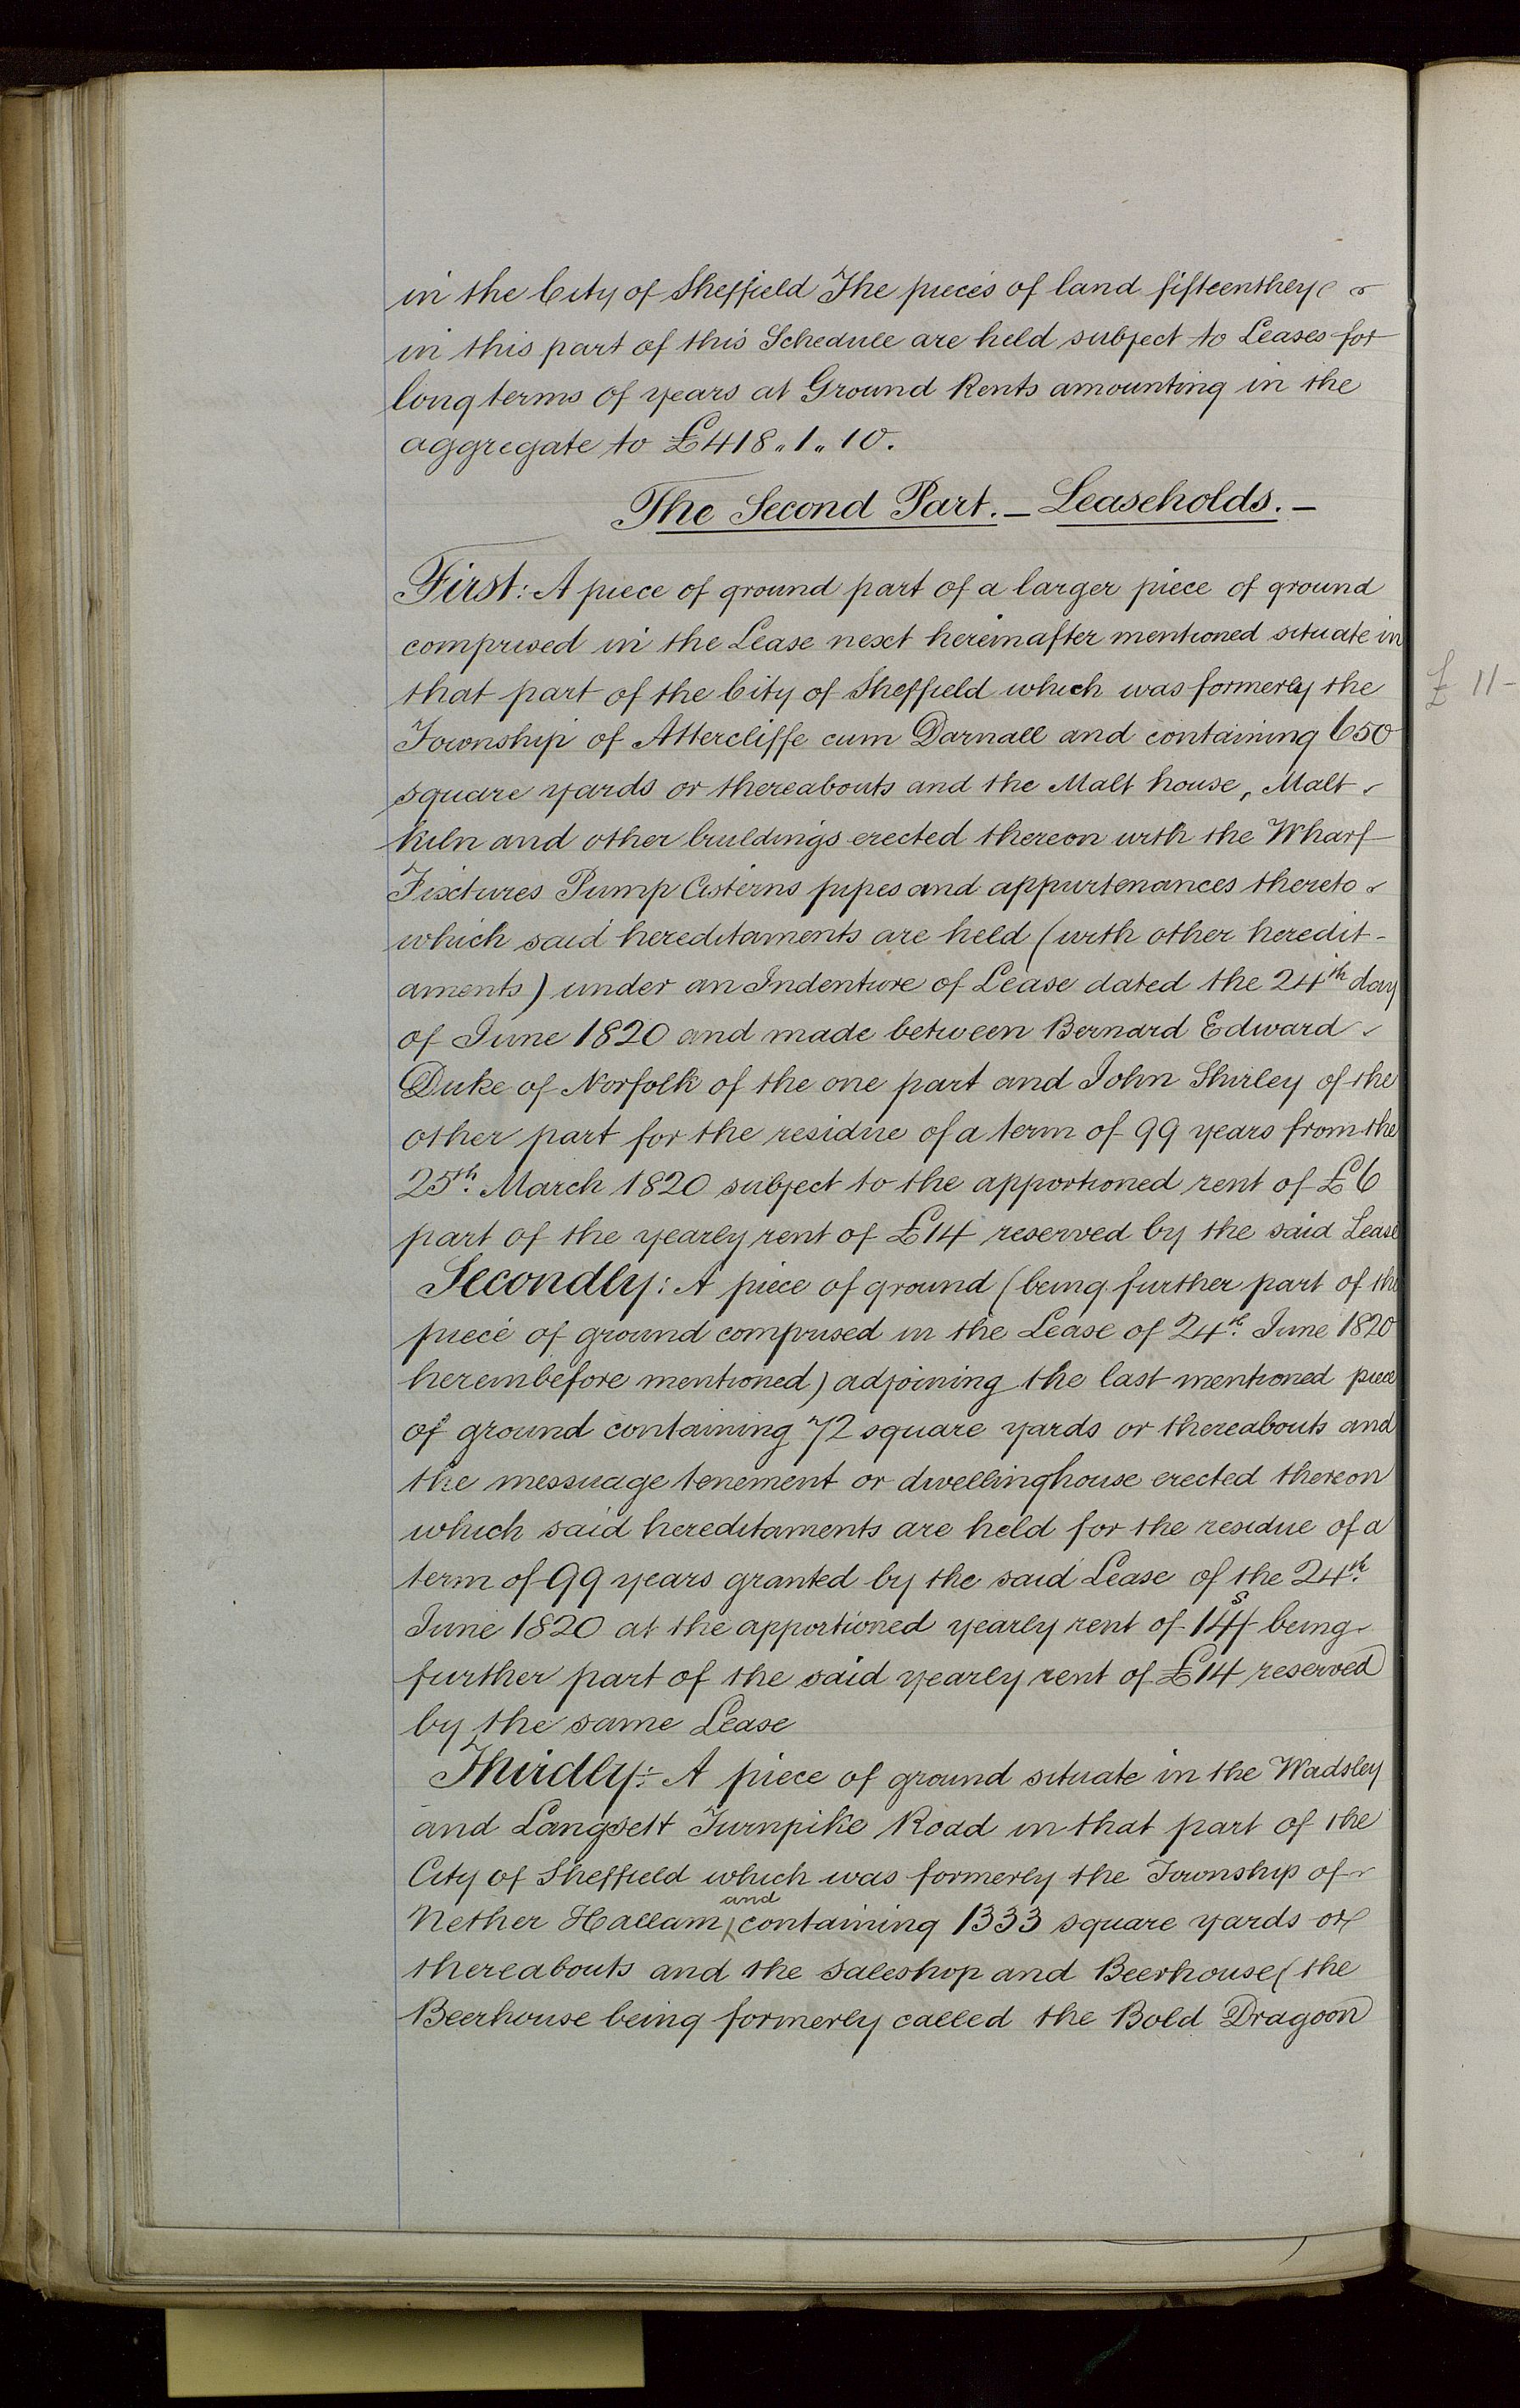 in the City of Sheffield The pieces of land fifteenthly
in this part of this Schedule are held subject to Leases for
long terms of years at Ground Rents amounting in the
aggregate to £418 „ 1 „ 10.
The Second Part. – Leaseholds. –
First: A piece of ground part of a larger piece of ground
comprised in the Lease next hereinafter mentioned situate in
that part of the City of Sheffield which was formerly the
Township of Attercliffe cum Darnall and containing 650
square yards or thereabouts and the Malt house, Malt
kiln and other buildings erected thereon with the Wharf
Fixtures Pump Cisterns pipes and appurtenances thereto
which said hereditaments are held (with other heredit-
aments) under an Indenture of Lease dated the 24th day
of June 1820 and made between Bernard Edward
Duke of Norfolk of the one part and John Shirley of the
other part for the residue of a term of 99 years from the
25th. March 1820 subject to the apportioned rent of £6
part of the yearly rent of £14 reserved by the said Lease
Secondly: A piece of ground (being further part of the
piece of ground comprised in the Lease of 24th. June 1820
hereinbefore mentioned) adjoining the last mentioned piece
of ground containing 72 square yards or thereabouts and
the messuage tenement or dwellinghouse erected thereon
which said hereditaments are held for the residue of a
term of 99 years granted by the said Lease of the 24th.
June 1820 at the apportioned yearly rent of 14s/ being
further part of the said yearly rent of £14 reserved
by the same Lease
Thirdly:- A piece of ground situate in the Wadsley
and Langsett Turnpike Road in that part of the
City of Sheffield which was formerly the Township of
Nether Hallam and containing 1333 square yards or
thereabouts and the saleshop and Beerhouse (the
Beerhouse being formerly called the Bold Dragoon
£ 11-